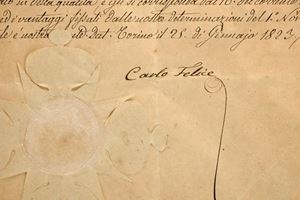 in detta qualità, e gli si corrisponda dal 16. di Novembre
ed i vantaggi fissati dalle nostre determinazioni del 1.° Nov
è nostra Dat. Torino il 25. di Gennajo 1823.
Carlo Felice